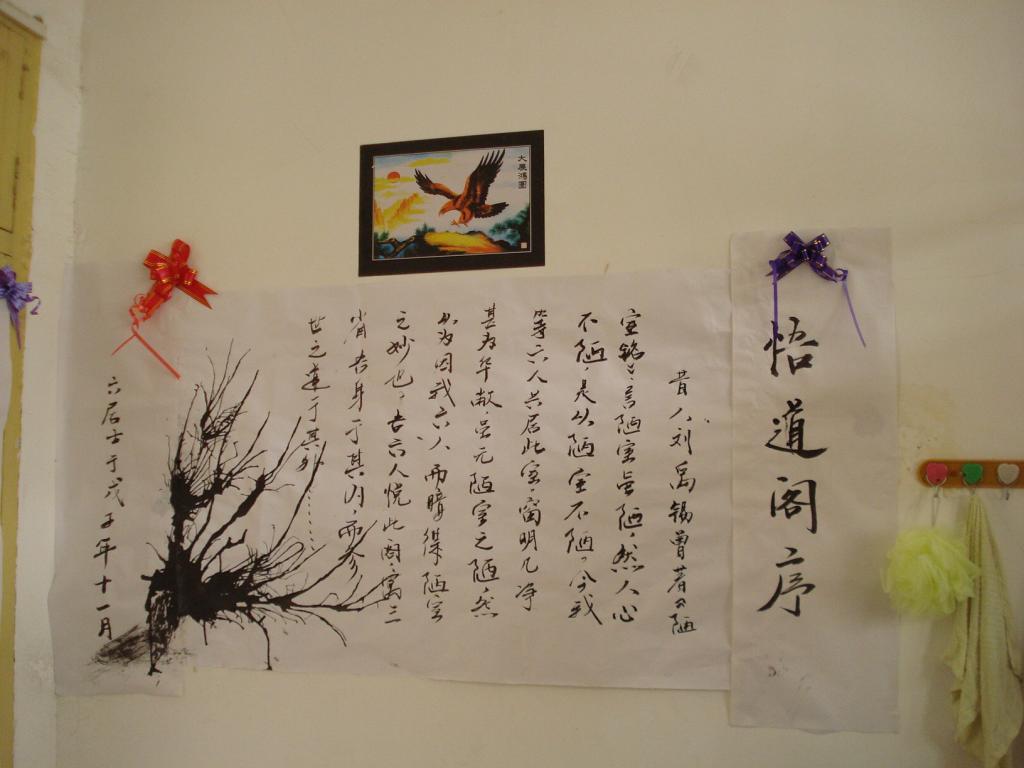 大展鸿图
悟道阁序
昔人刘禹锡曾著有陋
室铭。言陋室虽陋,然人心
不陋,是以陋室不陋。今我
等六人共居此室窗明几净
甚为华敞,虽无陋室之陋,然
因我六人而暗得陋室
之妙也。古六人悦此阁,寓三
身于其内,而参
世之道于其外……
六居士于戊子年十一月